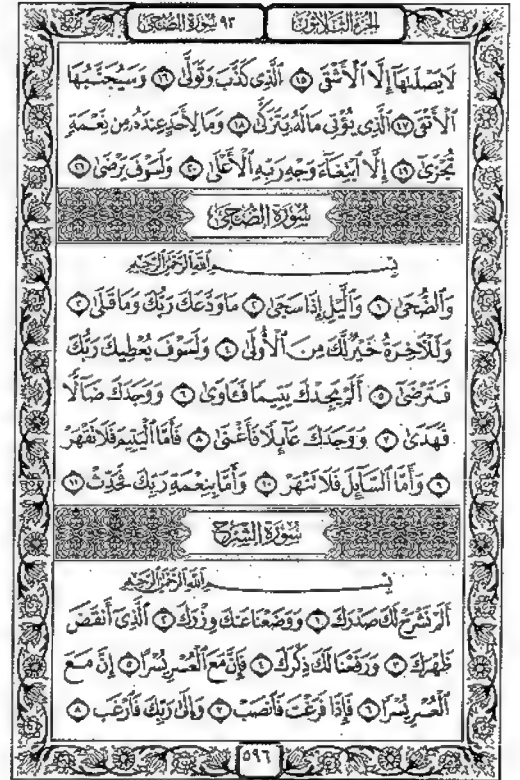 الجزء الثلاثون ٩٣ سورة الضحى
لَا يَصْلَىٰهَآ إِلَّا ٱلْأَشْقَى ١٥ ٱلَّذِى كَذَّبَ وَتَوَلَّىٰ ١٦ وَسَيُجَنَّبُهَا
ٱلْأَتْقَى ١٧ ٱلَّذِى يُؤْتِى مَالَهُۥ يَتَزَكَّىٰ ١٨ وَمَا لِأَحَدٍ عِندَهُۥ مِن نِّعْمَةٍ
تُجْزَىٰٓ ١٩ إِلَّا ٱبْتِغَآءَ وَجْهِ رَبِّهِ ٱلْأَعْلَىٰ ٢٠ وَلَسَوْفَ يَرْضَىٰ ٢١
سُورَةُ الضُّحَىٰ
بِسْمِ ٱللَّهِ ٱلرَّحْمَٰنِ ٱلرَّحِيمِ
وَٱلضُّحَىٰ ١ وَٱلَّيْلِ إِذَا سَجَىٰ ٢ مَا وَدَّعَكَ رَبُّكَ وَمَا قَلَىٰ ٣
وَلَلْـَٔاخِرَةُ خَيْرٌ لَّكَ مِنَ ٱلْأُولَىٰ ٤ وَلَسَوْفَ يُعْطِيكَ رَبُّكَ
فَتَرْضَىٰٓ ٥ أَلَمْ يَجِدْكَ يَتِيمًا فَـَٔاوَىٰ ٦ وَوَجَدَكَ ضَآلًّا
فَهَدَىٰ ٧ وَوَجَدَكَ عَآئِلًا فَأَغْنَىٰ ٨ فَأَمَّا ٱلْيَتِيمَ فَلَا تَقْهَرْ
٩ وَأَمَّا ٱلسَّآئِلَ فَلَا تَنْهَرْ ١٠ وَأَمَّا بِنِعْمَةِ رَبِّكَ فَحَدِّثْ ١١
سُورَةُ الشَّرْحِ
بِسْمِ ٱللَّهِ ٱلرَّحْمَٰنِ ٱلرَّحِيمِ
أَلَمْ نَشْرَحْ لَكَ صَدْرَكَ ١ وَوَضَعْنَا عَنكَ وِزْرَكَ ٢ ٱلَّذِىٓ أَنقَضَ
ظَهْرَكَ ٣ وَرَفَعْنَا لَكَ ذِكْرَكَ ٤ فَإِنَّ مَعَ ٱلْعُسْرِ يُسْرًا ٥ إِنَّ مَعَ
ٱلْعُسْرِ يُسْرًا ٦ فَإِذَا فَرَغْتَ فَٱنصَبْ ٧ وَإِلَىٰ رَبِّكَ فَٱرْغَب ٨
٥٩٦